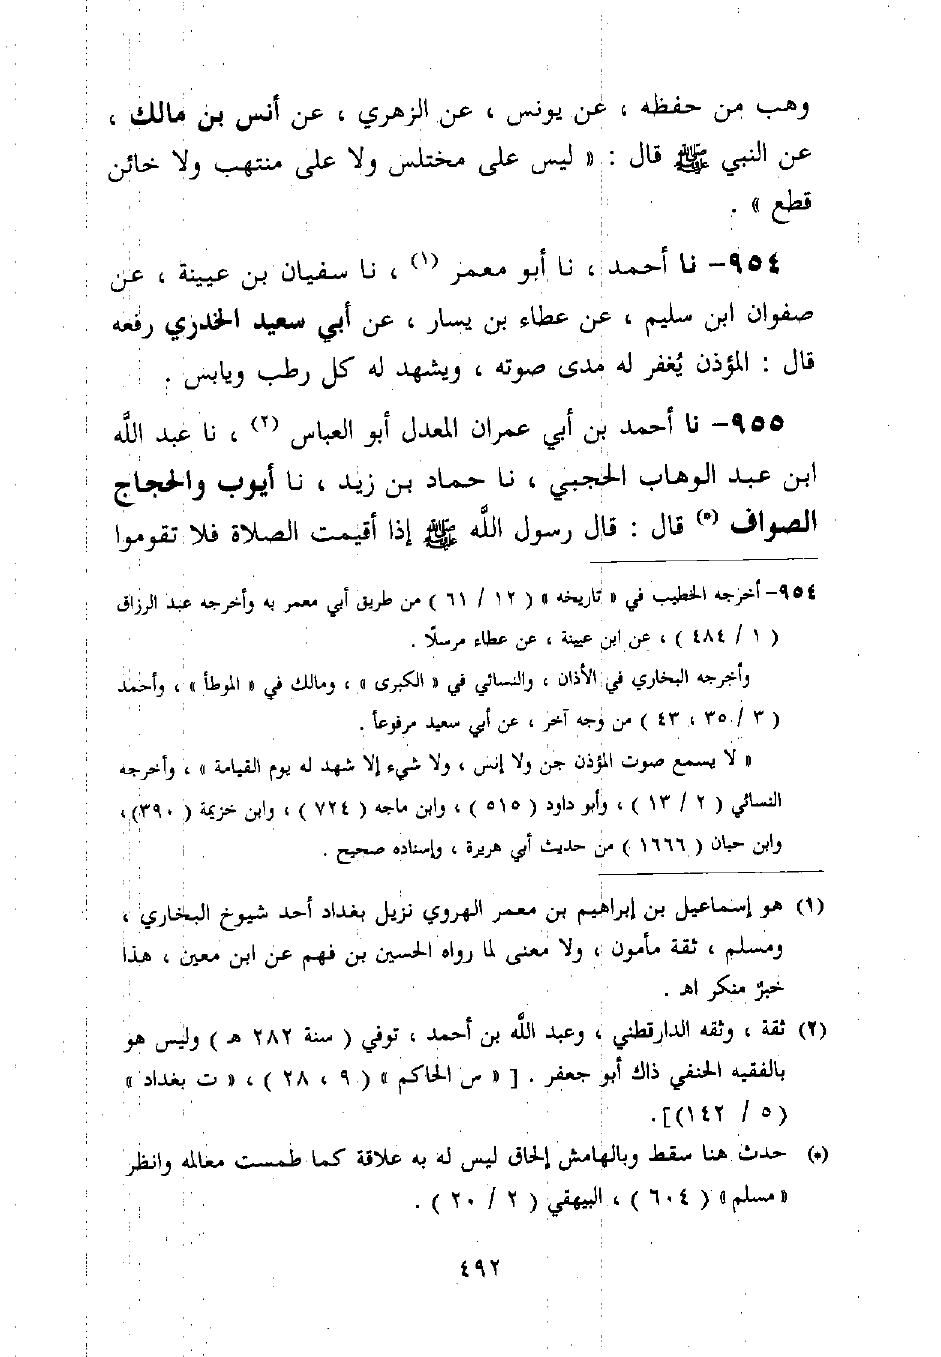 وهب من حفظه ، عن يونس ، عن الزهري ، عن أنس بن مالك ،
عن النبي ﷺ قال : « ليس على مختلس ولا على منتهب ولا خائن
قطع » .
٩٥٤- نا أحمد ، نا أبو معمر (١) ، نا سفيان بن عيينة ، عن
صفوان ابن سليم ، عن عطاء بن يسار ، عن أبي سعيد الخدري رفعه
قال : المؤذن يُغفر له مدى صوته ، ويشهد له كل رطب ويابس .
٩٥٥- نا أحمد بن أبي عمران المعدل أبو العباس (٢) ، نا عبد الله
ابن عبد الوهاب الحجبي ، نا حماد بن زيد ، نا أيوب والحجاج
الصواف (*) قال : قال رسول الله ﷺ إذا أقيمت الصلاة فلا تقوموا
٩٥٤- أخرجه الخطيب في « تاريخه » ( ١٢ / ٦١ ) من طريق أبي معمر به وأخرجه عبد الرزاق
( ١ / ٤٨٤ ) ، عن ابن عيينة ، عن عطاء مرسلًا .
وأخرجه البخاري في الأذان ، والنسائي في « الكبرى » ، ومالك في « الموطأ » ، وأحمد
( ٣ / ٣٥ ، ٤٣ ) من وجه آخر ، عن أبي سعيد مرفوعاً .
« لا يسمع صوت المؤذن جن ولا إنس ، ولا شيء إلا شهد له يوم القيامة » ، وأخرجه
النسائي ( ٢ / ١٣ ) ، وأبو داود ( ٥١٥ ) ، وابن ماجه ( ٧٢٤ ) ، وابن خزيمة ( ٣٩٠) ،
وابن حبان ( ١٦٦٦ ) من حديث أبي هريرة ، وإسناده صحيح .
(١) هو إسماعيل بن إبراهيم بن معمر الهروي نزيل بغداد أحد شيوخ البخاري ،
ومسلم ، ثقة مأمون ، ولا معنى لما رواه الحسين بن فهم عن ابن معين ، هذا
خبرٌ منكر اهـ .
(٢) ثقة ، وثقه الدارقطني ، وعبد الله بن أحمد ، توفي ( سنة ٢٨٢ هـ ) وليس هو
بالفقيه الحنفي ذاك أبو جعفر . [ « س الحاكم » ( ٩ ، ٢٨ ) ، « ت بغداد »
( ٥ / ١٤٢)].
(*) حدث هنا سقط وبالهامش إلحاق ليس له به علاقة كما طمست معالمه وانظر
« مسلم » ( ٦٠٤ ) ، البيهقي ( ٢ / ٢٠ ) .
٤٩٢